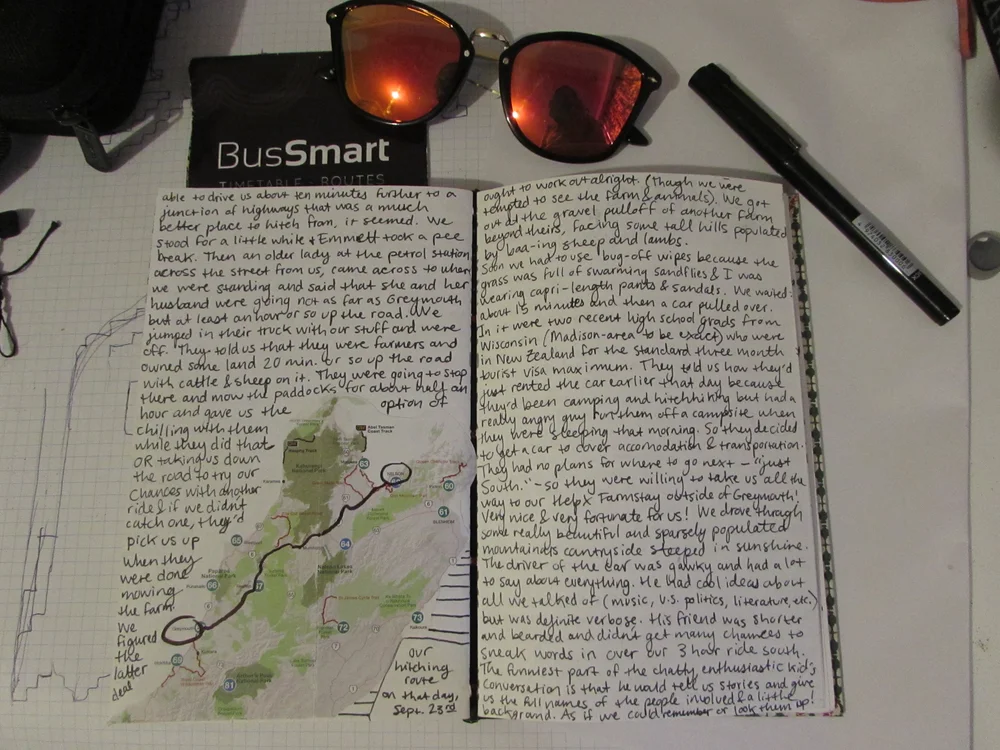 BusSmart
TIMETABLE · ROUTES
able to drive us about ten minutes further to a
junction of highways that was a much
better place to hitch from, it seemed. We
stood for a little while & Emmett took a pee
break. Then an older lady at the petrol station
across the street from us, came across to where
we were standing and said that she and her
husband were going not as far as Greymouth
but at least an hour or so up the road. We
jumped in their truck with our stuff and were
off. They told us that they were farmers and
owned some land 20 min. or so up the road
with cattle & sheep on it. They were going to stop
there and mow the paddocks for about half an
hour and gave us the option of
chilling with them
while they did that
OR taking us down
the road to try our
chances with another
ride & if we didn't
catch one, they'd
pick us up
when they
were done
mowing
the farm.
We
figured
the
latter
deal
Abel Tasman
Coast Track
Kahurangi
National Park
NELSON
63
60
61
BLENHEIM
64
65
66
67
Paparoa
National Park
69
72
73
81
our
hitching
route
on that day,
Sept. 23rd
ought to work out alright. (Though we were
tempted to see the farm & animals). We got
out at the gravel pulloff of another farm
beyond theirs, facing some tall hills populated
by baa-ing sheep and lambs.
Soon we had to use bug-off wipes because the
grass was full of swarming sandflies & I was
wearing capri-length pants & sandals. We waited
about 15 minutes and then a car pulled over.
In it were two recent high school grads from
Wisconsin (Madison-area to be exact) who were
in New Zealand for the standard three month
tourist visa maximum. They told us how they'd
just rented the car earlier that day because
they'd been camping and hitchhiking but had a
really angry guy run them off a campsite when
they were sleeping that morning. So they decided
to get a car to cover accomodation & transportation.
They had no plans for where to go next – "just
South." – so they were willing to take us all the
way to our HelpX Farmstay outside of Greymouth!
Very nice & very fortunate for us! We drove through
some really beautiful and sparsely populated
mountainous countryside steeped in sunshine.
The driver of the car was gawky and had a lot
to say about everything. He had cool ideas about
all we talked of (music, U.S. politics, literature, etc.)
but was definite verbose. His friend was shorter
and bearded and didn't get many chances to
sneak words in over our 3 hour ride south.
The funniest part of the chatty enthusiastic kid's
conversation is that he would tell us stories and give
us the full names of the people involved & a little
background. As if we could remember or look them up!